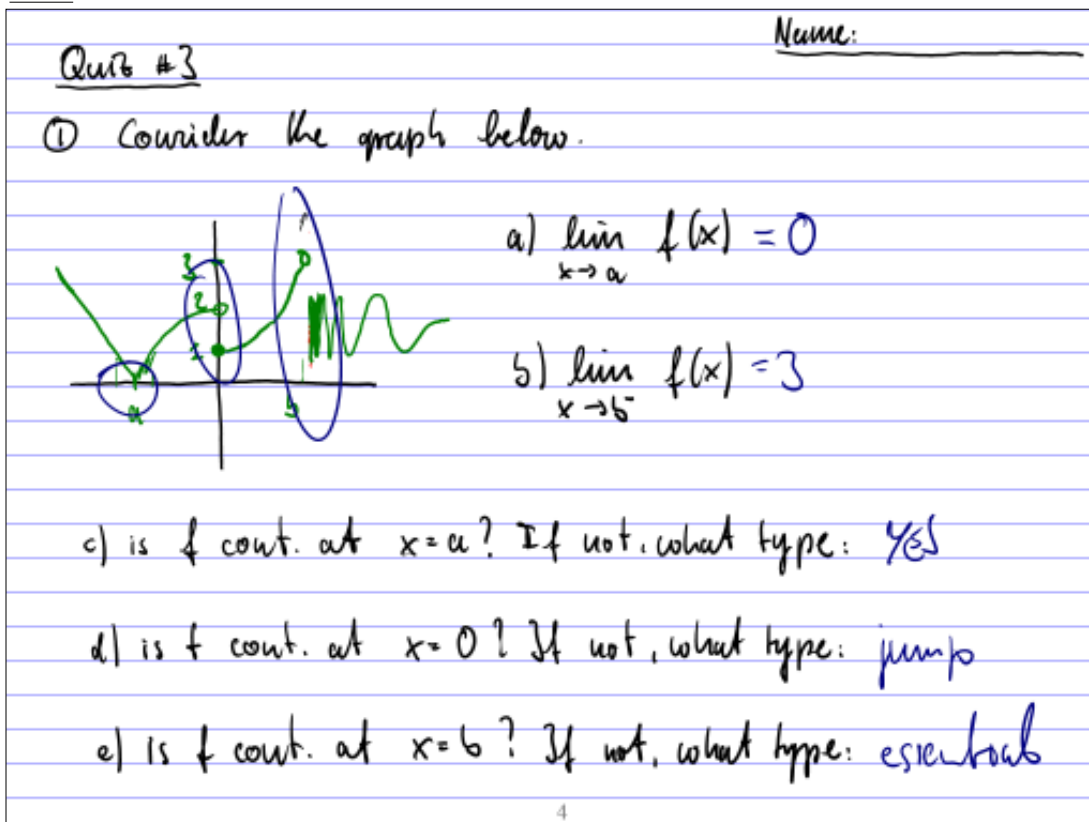 Name:
Quiz #3
① Consider the graph below.
a) lim f(x) = 0
x→a
3
2
1
a
b
b) lim f(x) = 3
x→b⁻
c) is f cont. at x=a? If not, what type: YES
d) is f cont. at x=0? If not, what type: jump
e) is f cont. at x=b? If not, what type: essential
4